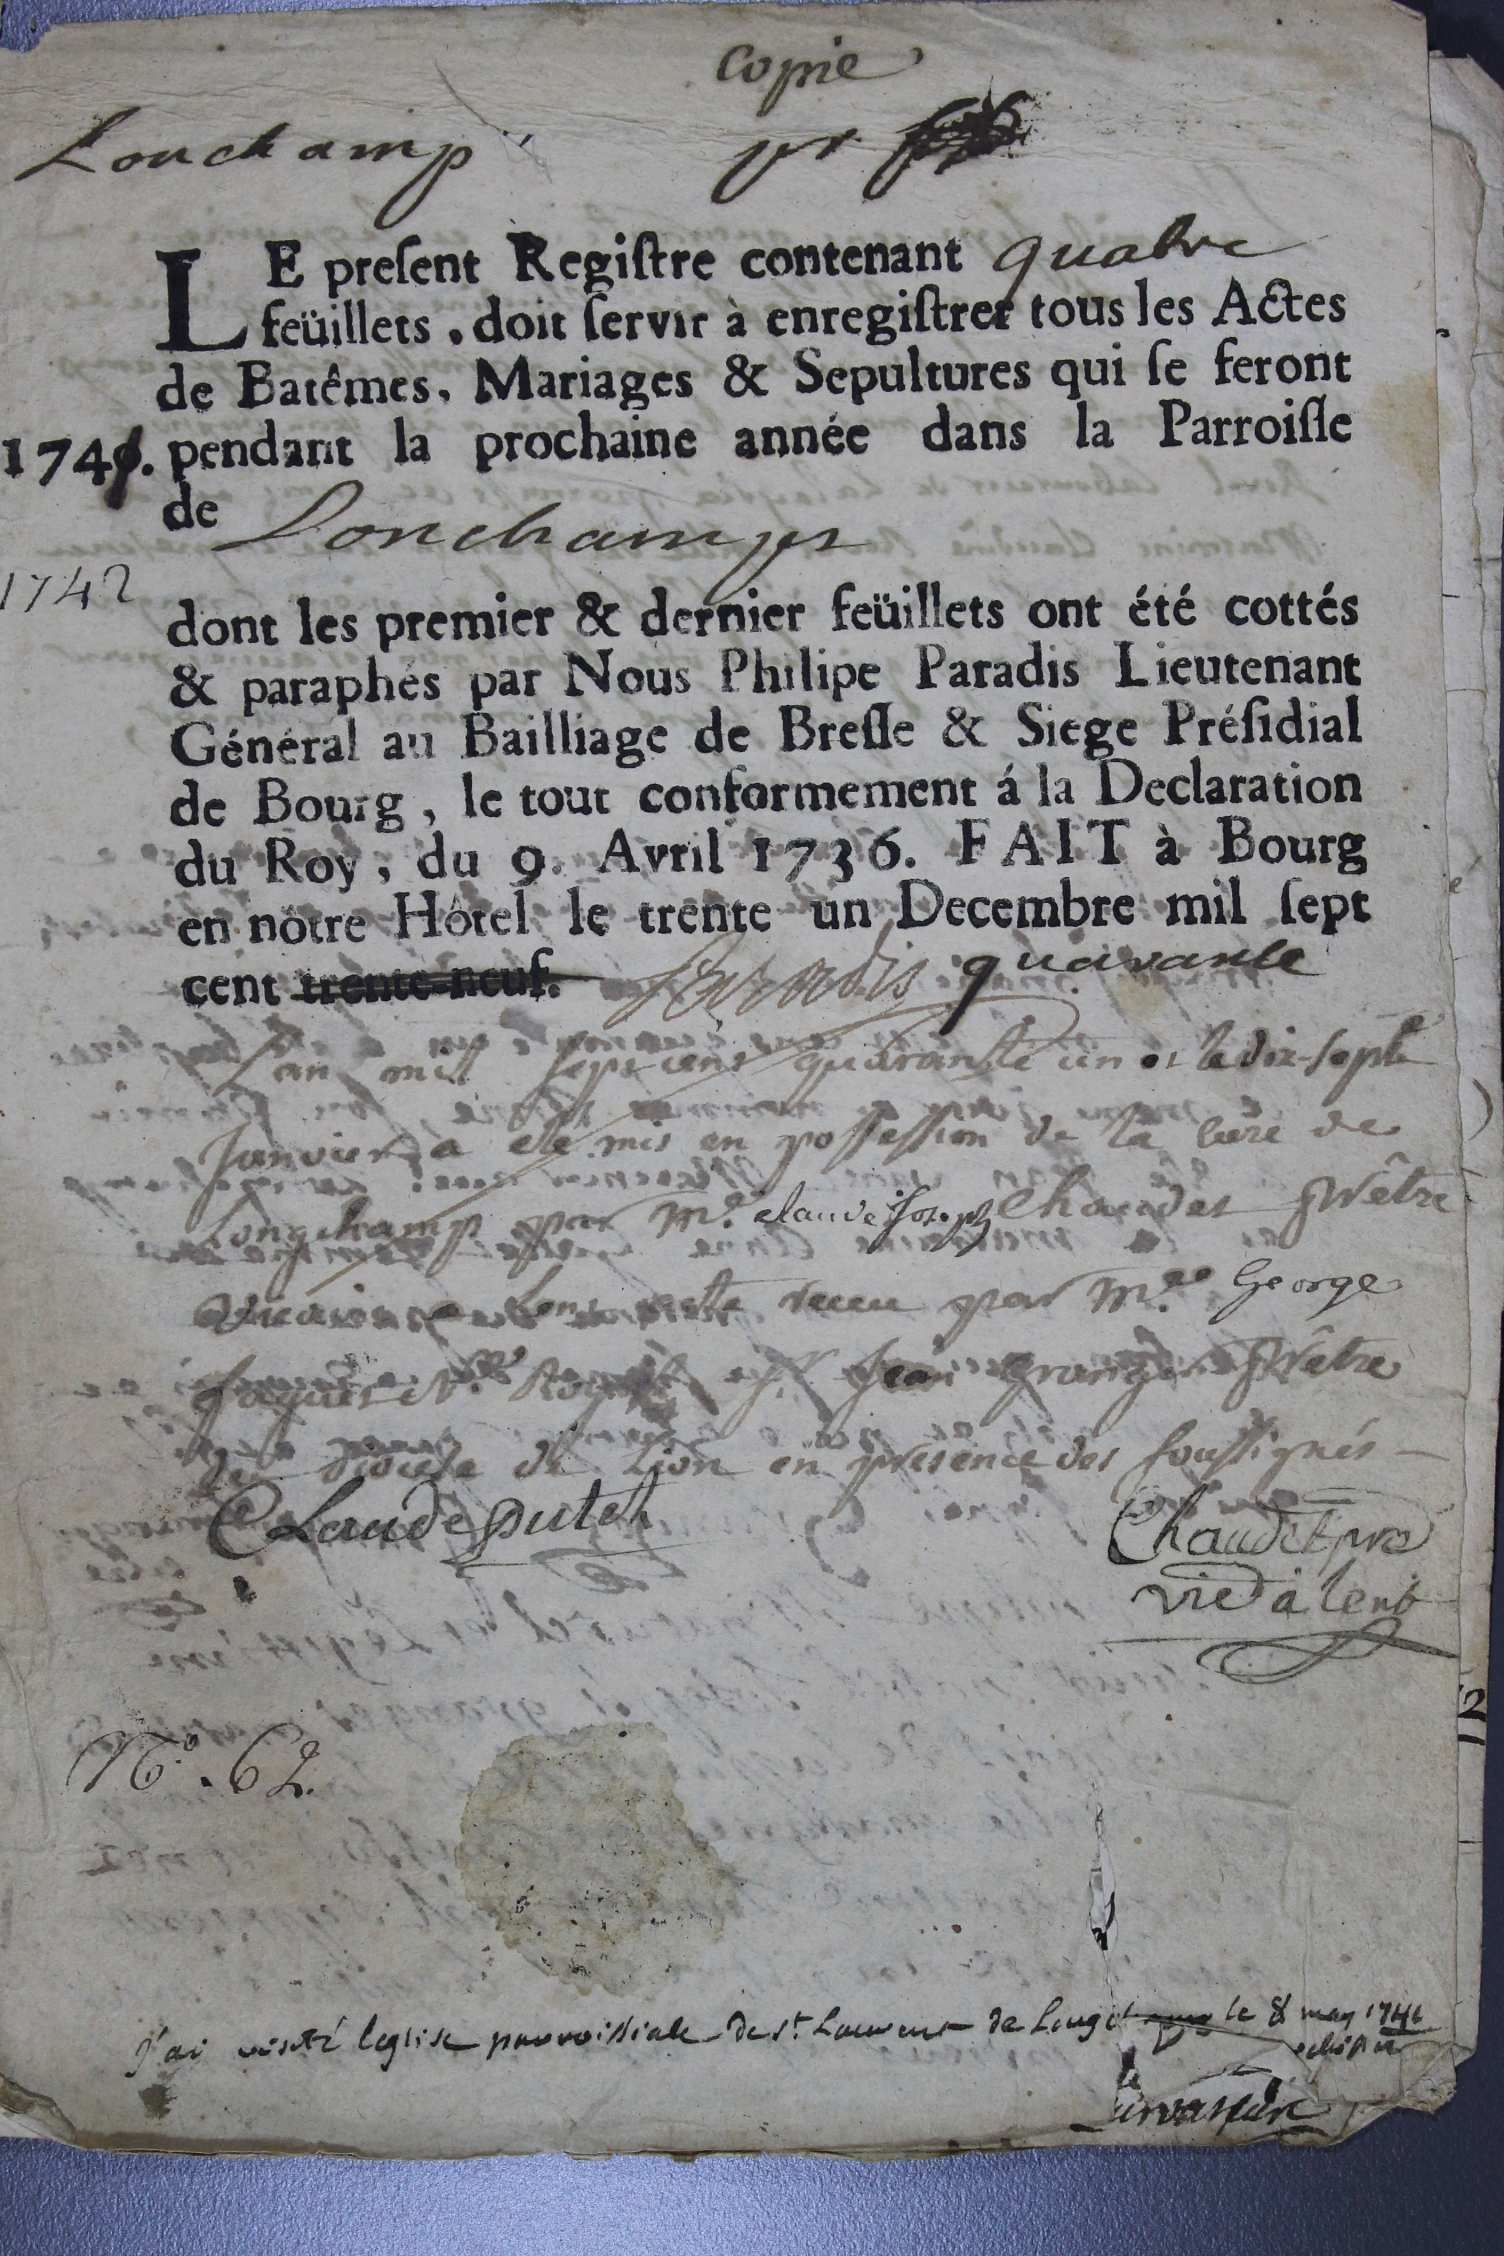 copie
Lonchamp
pr
LE preſent Regiſtre contenant quatre
feüillets, doit ſervir à enregiſtrer tous les Actes
de Batêmes, Mariages & Sepultures qui ſe feront
1741. pendant la prochaine année dans la Parroiſſe
de Lonchamps
1742
dont les premier & dernier feüillets ont été cottés
& paraphés par Nous Philipe Paradis Lieutenant
Général au Bailliage de Breſſe & Siege Préſidial
de Bourg, le tout conformement á la Declaration
du Roy, du 9. Avril 1736. FAIT à Bourg
en nôtre Hôtel le trente un Decembre mil ſept
cent trente-neuf. Paradis quarante
Lan mil sept cent quarante un et le dix-sept
Janvier a ete mis en possession de la cure de
Longchamp par Mre claude joseph Chaudet Prêtre
vicaire a Lent cette receu par Mre George
Jaques N.re Royal Sr Jean Granger Prêtre
du diocese de Lion en presence des soussignés
Claude putet
Chaudet pre
vic à lent
No. 62.
J'ai visité leglise parroissiale de st Laurent de Longch le 8 may 1741